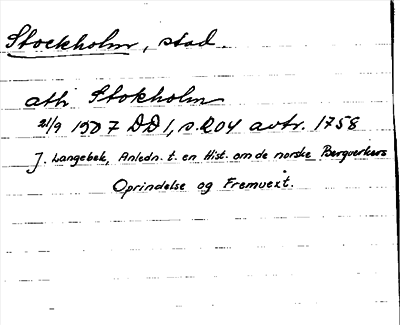 Stockholm, stad.
aff Stokholm
21/9 1507 DD1, s.204 avtr. 1758
J. Langebek, Anledn. t. en Hist. om de norske Bergverkers
Oprindelse og Fremvext.